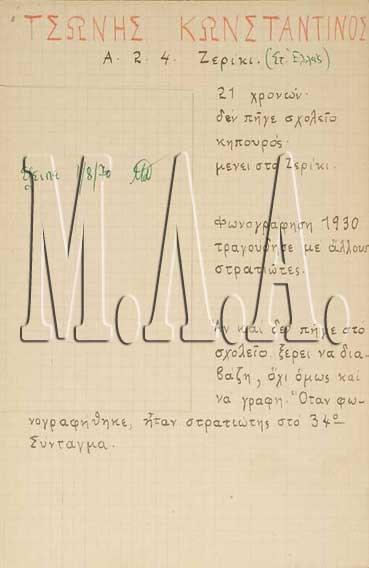 ΤΣΩΝΗΣ ΚΩΝΣΤΑΝΤΙΝΟΣ
Α. 2. 4. Ζερίκι. (Στ. Ελλάς)
21 χρονών.
δέν πῆγε σχολεῖο
κηπουρός.
μενει στό Ζερίκι.
1/8/70
Φωνογράφηση 1930
τραγουδησε με ἄλλους
στρατιῶτες.
Μ.Λ.Α.
Ἄν καί δεν πῆγε στό
σχολεῖο ξερει να δια-
βάζη, ὄχι ὅμως καί
να γραφη. Ὅταν φω-
νογραφήθηκε, ἦταν στρατιώτης στό 34ο
Συνταγμα.